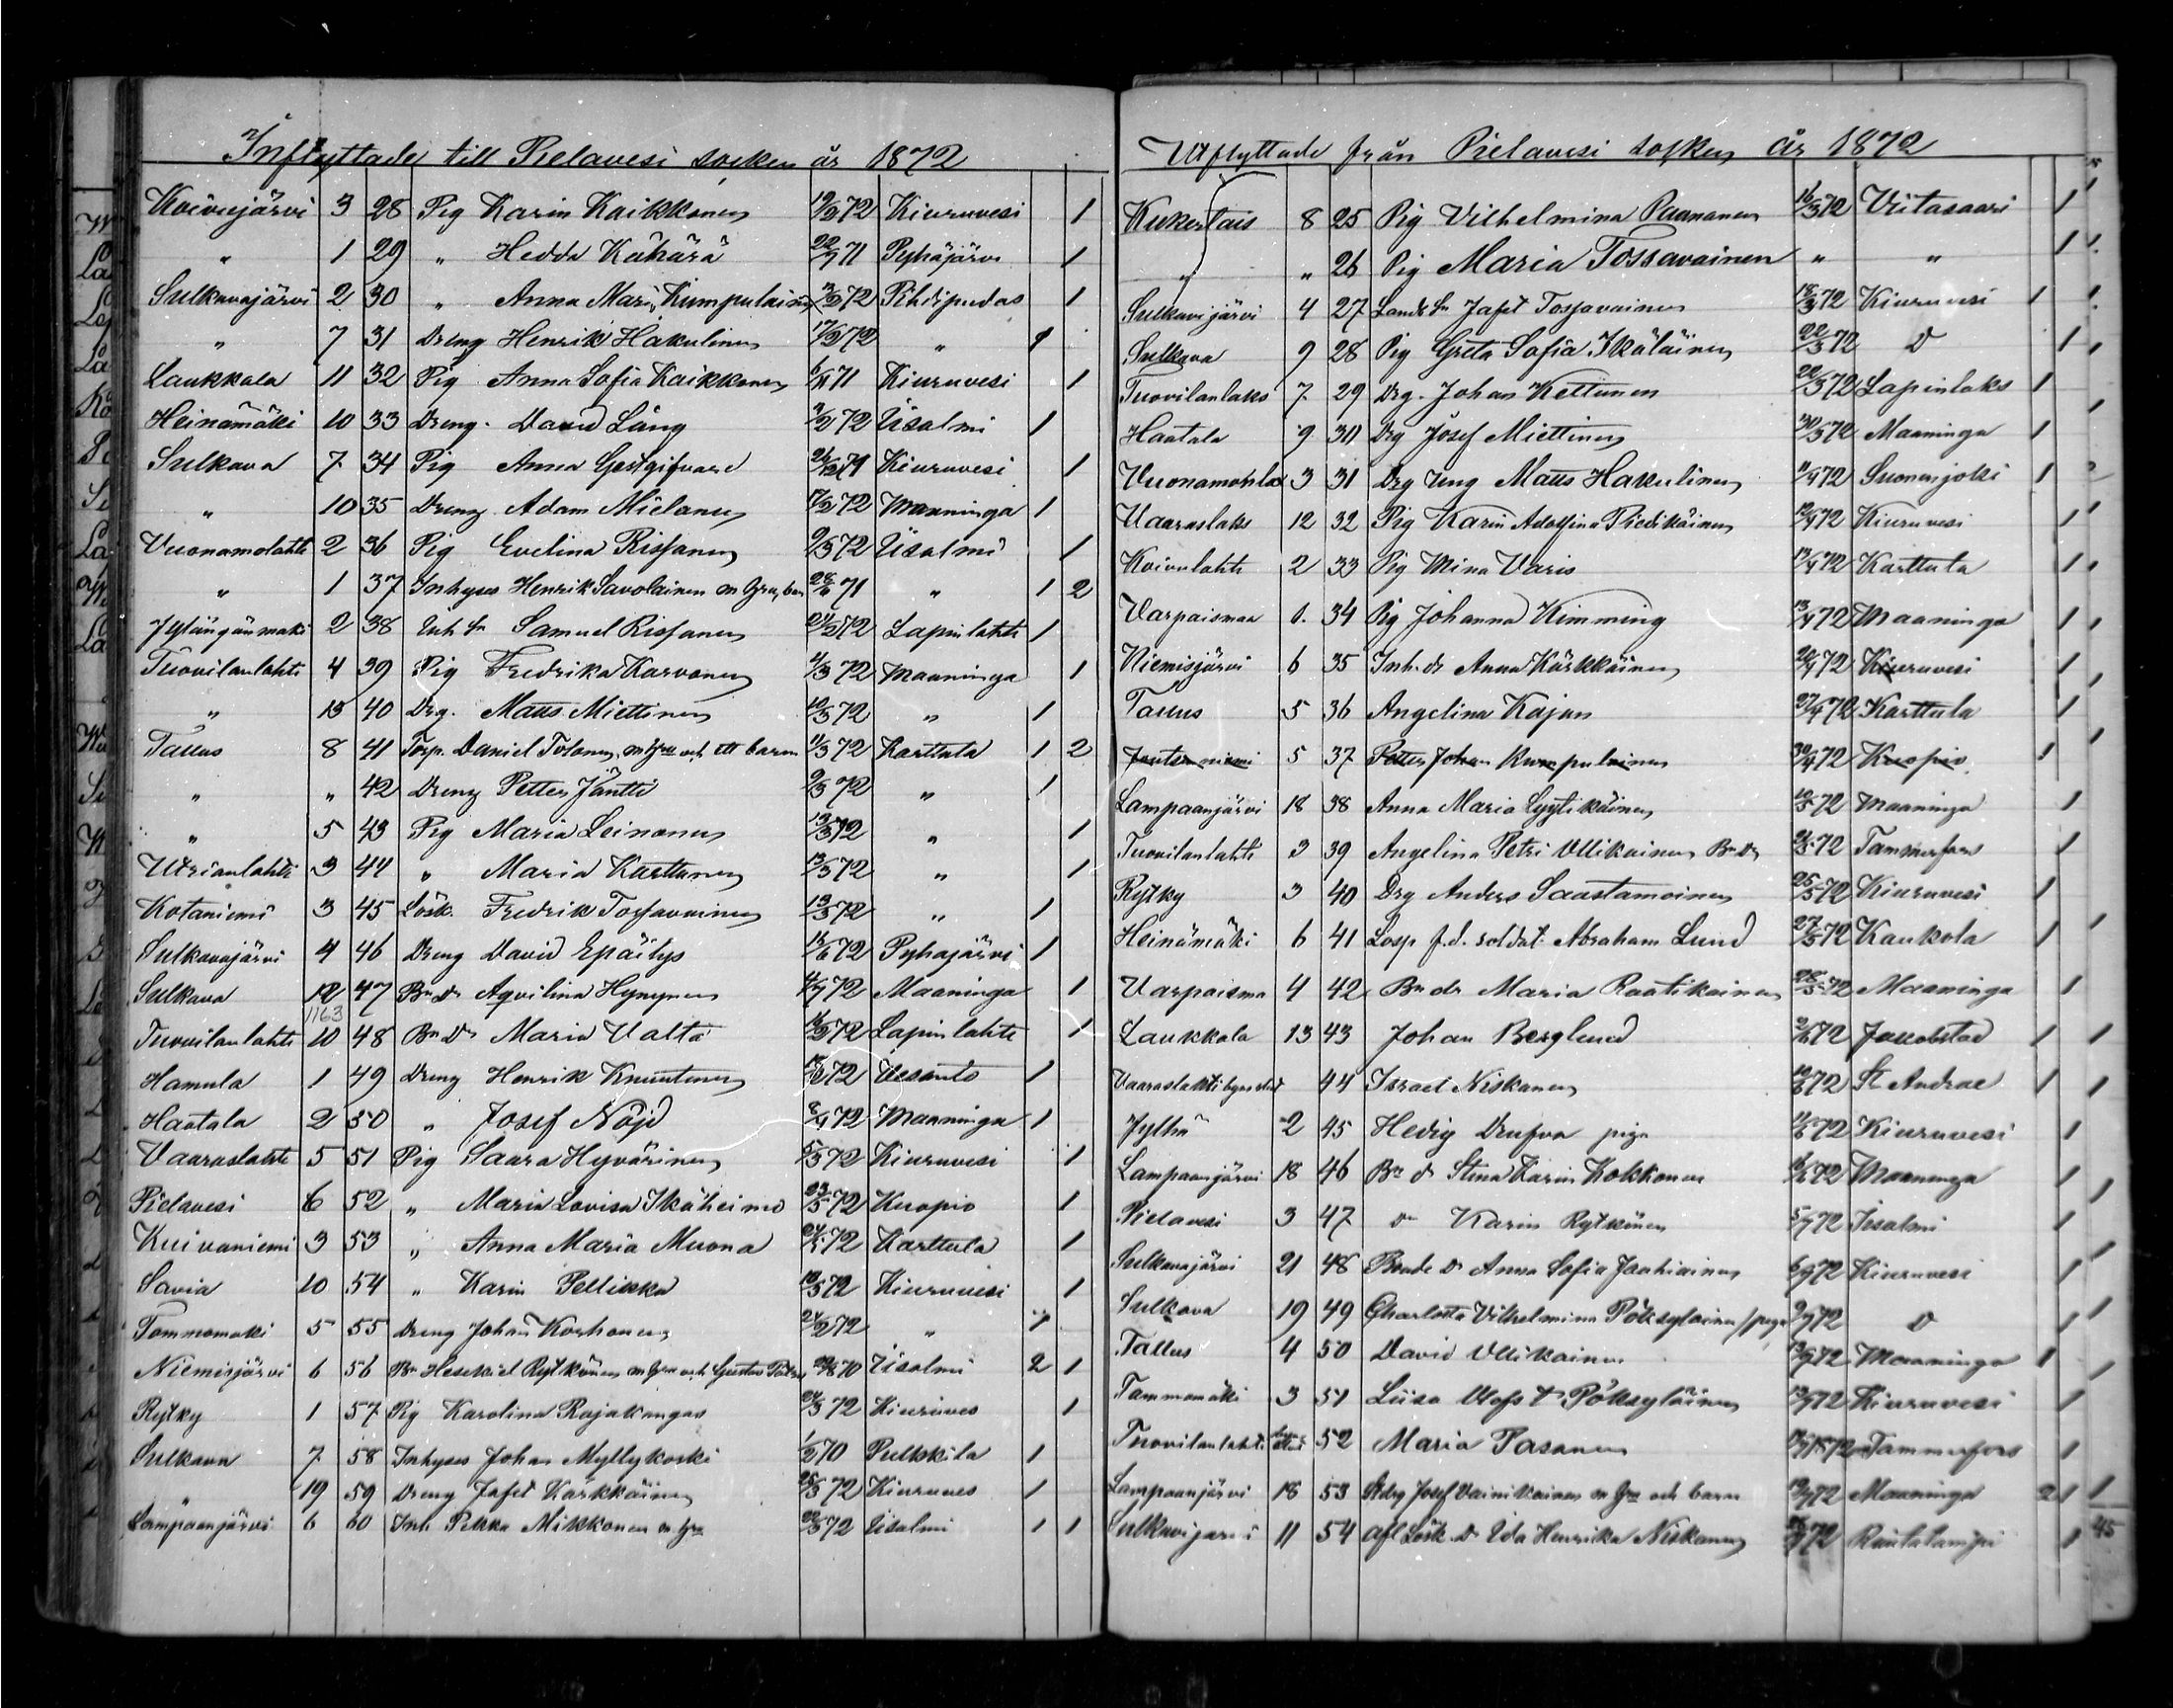 Inflyttade till Pielavesi socken år 1872
Koivujärvi 3 28 Pig Karin Kaikkonen 19/2 72 Kiuruvesi 1
" 1 29 " Hedda Kähärä 22/7 71 Pyhäjärvi 1
Sulkavajärvi 2 30 " Anna Mari Kumpulainen 3/2 72 Pihtipudas 1
" 7 31 Dreng Henrik Hakulinen 17/2 72 " 1
Laukkala 11 32 Pig Anna Sofia Kaikkonen 71 Kiuruvesi 1
Heinämäki 10 33 Dreng David Lång 3/2 72 Iisalmi 1
Sulkava 7 34 Pig Anna Gestgifvare 71 Kiuruvesi 1
" 10 35 Dreng Adam Mielanen 17/2 72 Maaninga 1
Vuonamolahti 2 36 Pig Evelina Rissanen 9/3 72 Iisalmi 1
" 1 37 Inhyses Henrik Savolainen m hru, barn 28/6 71 " 1 2
Jylängönmäki 2 38 Inh sn Samuel Rissanen 21/2 72 Lapinlahti 1
Tuovilanlahti 4 39 Pig Fredrika Karvonen 4/3 72 Maaninga 1
" 13 40 Drg. Matts Miettinen 10/3 72 " 1
Tallus 8 41 Torp. Daniel Tolonen m hru och ett barn 11/3 72 Karttula 1 2
" " 42 Dreng Petter Jäntti 9/3 72 " 1
" 5 43 Pig Maria Leinonen 13/3 72 " 1
Utrianlahti 3 44 " Maria Karttunen 13/3 72 " 1
Kotaniemi 3 45 Lösk. Fredrik Tossavainen 13/3 72 " 1
Sulkavajärvi 4 46 Dreng David Epäilys 72 Pyhäjärvi 1
Sulkava 12 47 Bn Dr Aqvilina Hynynen 72 Maaninga 1
1163
Tuovilanlahti 10 48 Bn Dr Maria Valta 72 Lapinlahti 1
Hamula 1 49 Dreng Henrik Knuutinen 72 Vesanto 1
Haatala 2 50 " Josef Nöjd 8/4 72 Maaninga 1
Vaaraslahti 5 51 Pig Saara Hyvärinen 5/3 72 Kiuruvesi 1
Pielavesi 6 52 " Maria Lovisa Ikäheimo 23/5 72 Kuopio 1
Kuivaniemi 3 53 " Anna Maria Muona 72 Karttula 1
Savia 10 54 " Karin Pellikka 72 Kiuruvesi 1
Tommomäki 5 55 Dreng Johan Korhonen 24/2 72 " 1
Niemisjärvi 6 56 Bn Hesekiel Rytkönen m hru och Gustav 70 Iisalmi 2 1
Rytky 1 57 Pig Karolina Rajakangas 24/3 72 Kiuruves 1
Sulkava 7 58 Inhyses Johan Myllykoski 1/2 70 Pulkkila 1
" 19 59 Dreng Jafet Kärkkäinen 25/3 72 Kiuruves 1
Lampaanjärvi 6 60 Inh Pekka Mikkonen m hru 72 Iisalmi 1 1
Utflyttade från Pielavesi socken år 1872
8 25 Pig Vilhelmina Paananen 16/3 72 Viitasaari 1
" " 26 Pig Maria Tossavainen " " 1
Sulkavajärvi 4 27 Landb sn Jafet Tossavainen 18/3 72 Kiuruvesi 1
Sulkava 9 28 Pig Greta Sofia Ikäläinen 22/3 72 D 1
Tuovilanlaks 7 29 Drg. Johan Kettunen 22/3 72 Lapinlaks 1
Haatala 9 30 Drg Josef Miettinen 30/3 72 Maaninga 1
Vuonamohla 3 31 Drg Ung Matts Hakulinen 11/4 72 Suonenjoki 1
Vaaraslaks 12 32 Pig Karin Adolfina Piedikäinen 12/4 72 Kiuruvesi 1
Koivulahti 2 33 Pig Mina Varis 13/4 72 Karttula 1
Varpaismaa 1. 34 Pig Johanna Kimming 13/4 72 Maaninga 1
Niemisjärvi 6 35 Inh. dr Anna Kärkkäinen 20/4 72 Kiuruvesi 1
Tallus 5 36 Angelina Kajan 27/4 72 Karttula 1
Joutsenniemi 5 37 Petter Johan Kumpulainen 30/4 72 Kuopio 1
Lampaanjärvi 18 38 Anna Maria Lyytikäinen 10/5 72 Maaninga 1
Tuovilanlahti 3 39 Angelina Petri Ullikainen Bn Dr 72 Tammerfors 1
Rytky 3 40 Drg Anders Saastamoinen 25/5 72 Kiuruvesi 1
Heinämäki 6 41 Losp f.d. soldat Abraham Lund 27/5 72 Kaukola 1
Varpaisma 4 42 Bn dr Maria Raatikainen 28/5 72 Maaninga 1
Laukkala 13 43 Johan Berglund 72 Jacobstad 1
44 Israel Niskanen 72 St Andrae 1
Jylhä 2 45 Hedvig Drufva piga 72 Kiuruvesi 1
Lampaanjärvi 18 46 Bn dr Stina Karin Kokkonen 72 Maaninga 1
Pielavesi 3 47 Dr Karin Rytkönen 5/7 72 Iisalmi 1
Sulkavajärvi 21 48 Bonde Dr Anna Sofia Jaahiainen 72 Kiuruvesi 1
Sulkava 19 49 Charlotta Vilhelmina Pöksyläinen /piga 9/7 72 D 1
Tallus 4 50 David Ullikainen 72 Maaninga 1
Tammamäki 3 51 Liisa Olofs dt Pöksyläinen 72 Kiuruvesi 1
Tuovilanlahti 52 Maria Pasanen 1872 Tammerfors 1
Lampaanjärvi 18 53 Josef Vainikainen m hru och barn 72 Maaninga 2 1
Sulkavajärvi 11 54 afl Lösk Dr Ida Henrika Niskanen 72 Rautalampi 1 45